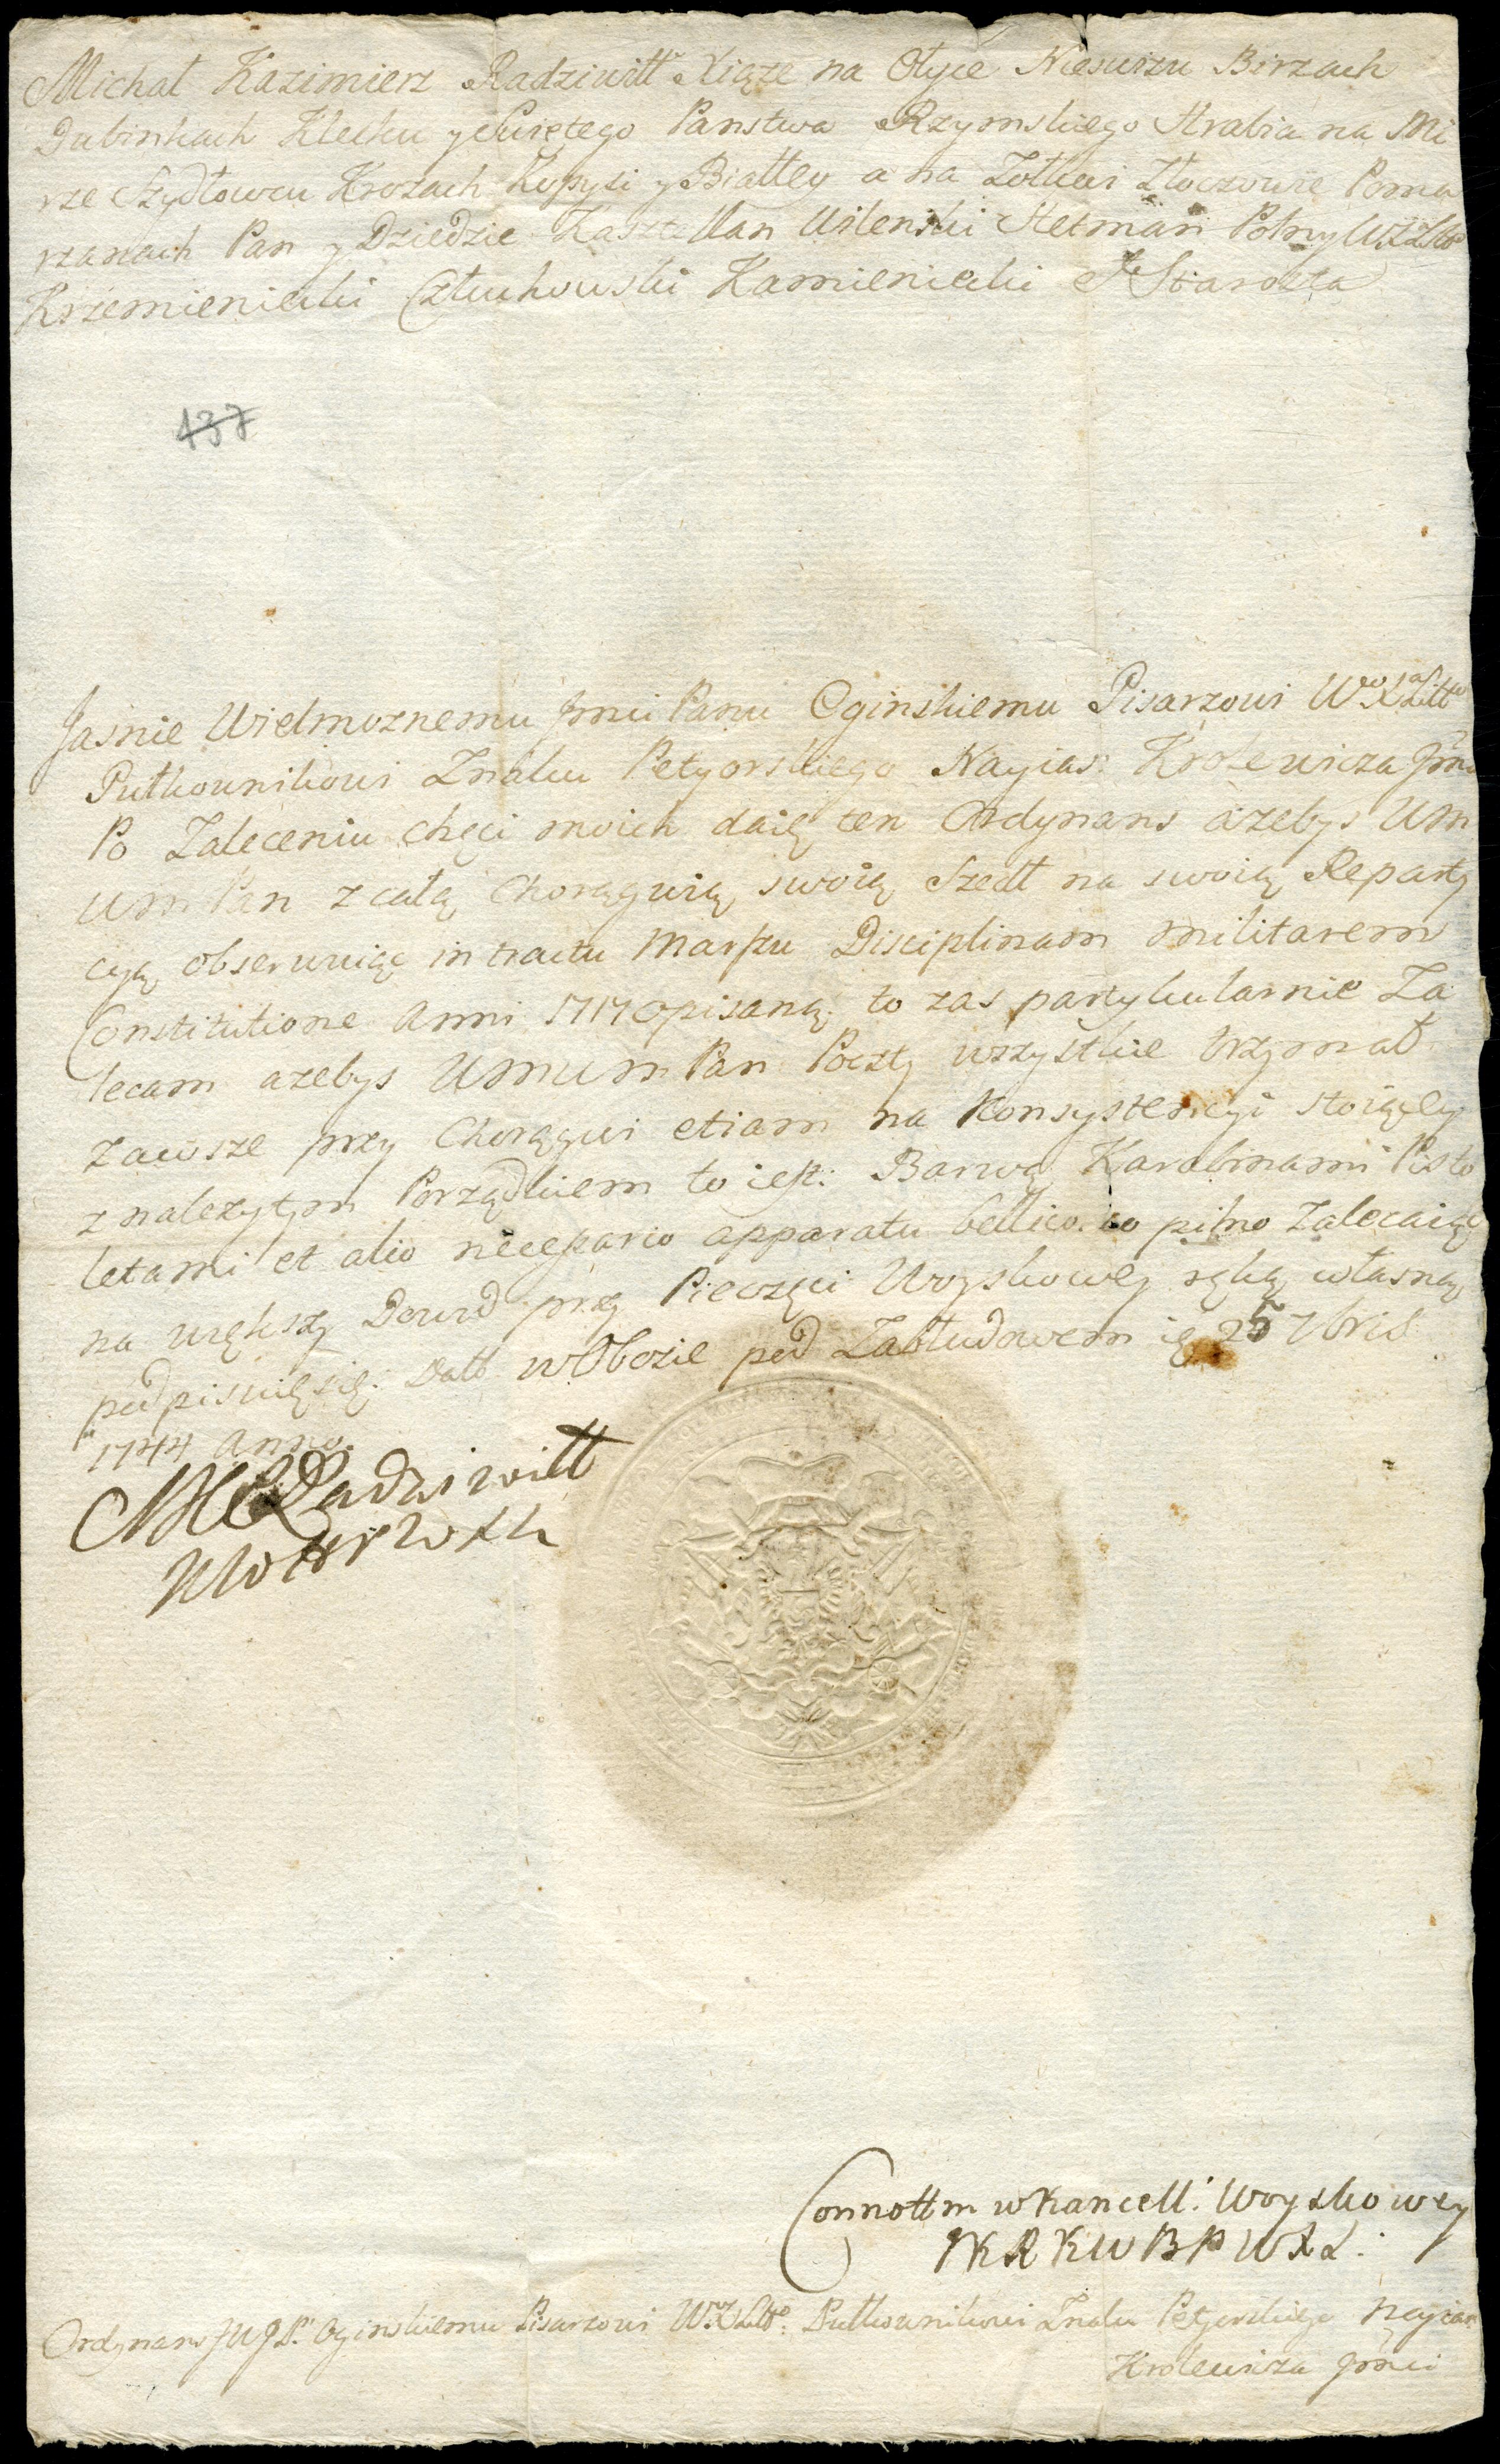 Michał Kazimierz Radziwiłł Xiąże na Ołyce Nieswizu Birzach
Dubinkach Klecku y Swiętego Panstwa Rzymskiego Hrabia na Mi
rze Szydłowcu Krozach Kopysi y Białłey a na Zołkwi Złoczowie Pomo
rzanach Pan y Dziedzic Kasztellan Wilenski Hetman Polny W.X.Litt
Krzemieniecki Człuchowski Kamieniecki Starosta
137
Jasnie Wielmoznemu Jmci Panu Oginskiemu Pisarzowi W.X.Litt
Pułkownikowi Znaku Petyorskiego Nayias: Krolewicza Jmci
Po Zaleceniu chęci moich daię ten Ordynans azebys Um
Um Pan z całą Chorągwią swoią Szedł na swoią Reparty
cyą obserwuiąc in tractu Marszu Disciplinam militarem
Constitutione Anni 1717 opisaną. to zas partykularnie Za
lecam azebys UmUm Pan Poczty wszystkie trzymał
zawsze przy Chorągwi etiam na Konsystencyi stoiącey
z nalezytym Porządkiem to iest: Barwą Karabinami Pisto
letami et alio necessario apparatu bellico. co pilno Zalecaiąc
na większy Dowod przy Pieczęci Woyskowey ręką własną
podpisuię się. Datt w Obozie pod Zabłudowem 25 7bris
1744 Anno.
MK Radziwiłł
Connottm w Kancell: Woyskowey
Ordynans JWJP. Oginskiemu Pisarzowi W.X.Litt. Pułkownikowi Znaku Petyorskiego Nayias
Krolewicza Jmci